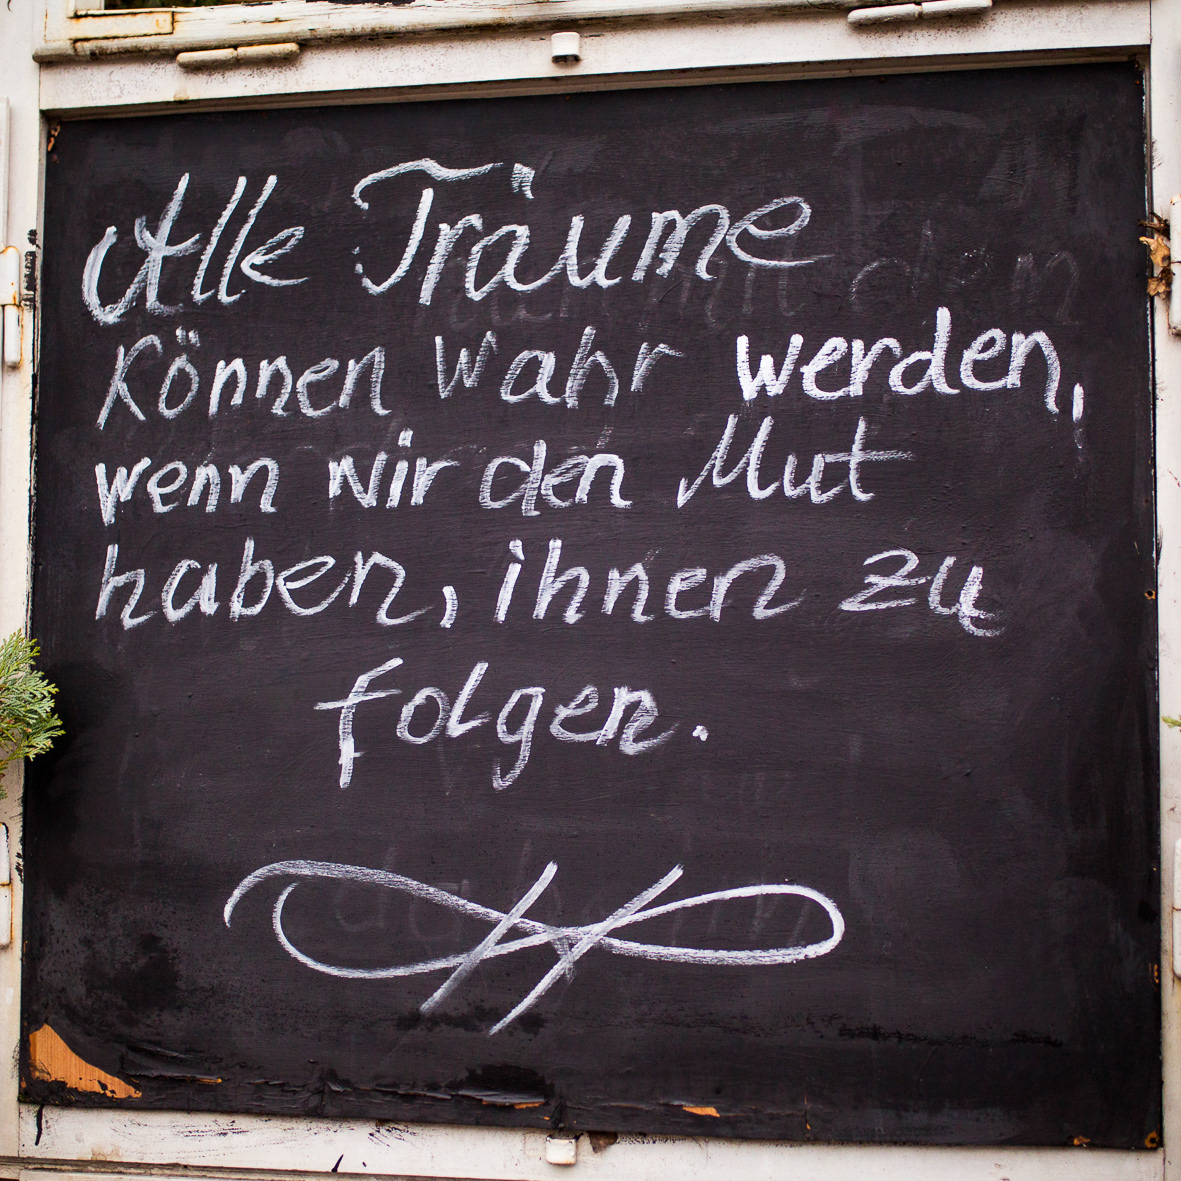 Alle Träume
können wahr werden,
wenn wir den Mut
haben, ihnen zu
folgen.